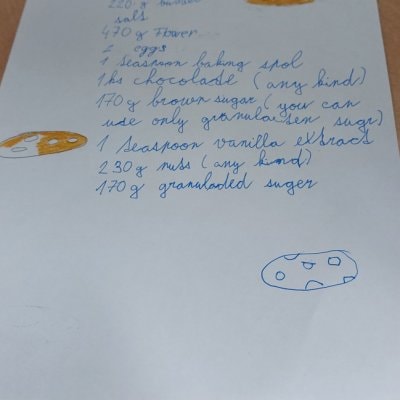 220 g
salt
470 g Flower
2 eggs
1 teaspoon baking spol
chocolade (any kind)
170 g brown sugar (you can
use only sugr)
1 teaspoon vanilla extract
230 g nuts (any kind)
170 g granuladed suger